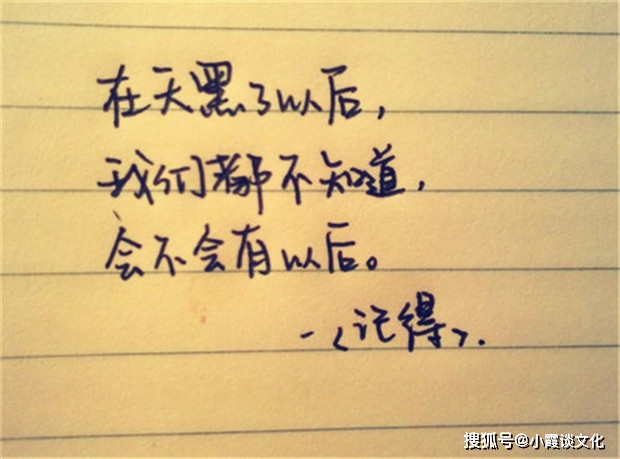 在天黑了以后，
我们都不知道，
会不会有以后。
-<记得>.
搜狐号@小霞谈文化